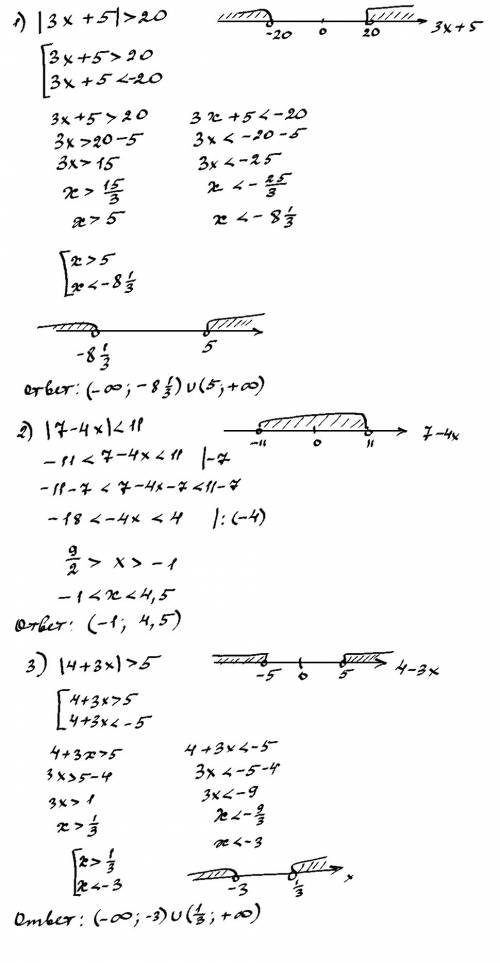 1) |3x+5|>20
-20 0 20 3x+5
[3x+5>20
3x+5<-20
3x+5>20 3x+5<-20
3x>20-5 3x<-20-5
3x>15 3x<-25
x>15/3 x<-25/3
x>5 x<-8 1/3
[x>5
x<-8 1/3
-8 1/3 5
Ответ: (-∞; -8 1/3)∪(5; +∞)
2) |7-4x|<11
-11 0 11 7-4x
-11<7-4x<11 |-7
-11-7<7-4x-7<11-7
-18<-4x<4 |:(-4)
9/2 > x > -1
-1<x<4,5
Ответ: (-1; 4,5)
3) |4+3x|>5
-5 0 5 4-3x
[4+3x>5
4+3x<-5
4+3x>5 4+3x<-5
3x>5-4 3x<-5-4
3x>1 3x<-9
x>1/3 x<-9/3
x<-3
[x>1/3
x<-3
-3 1/3 x
Ответ: (-∞; -3)∪(1/3; +∞)